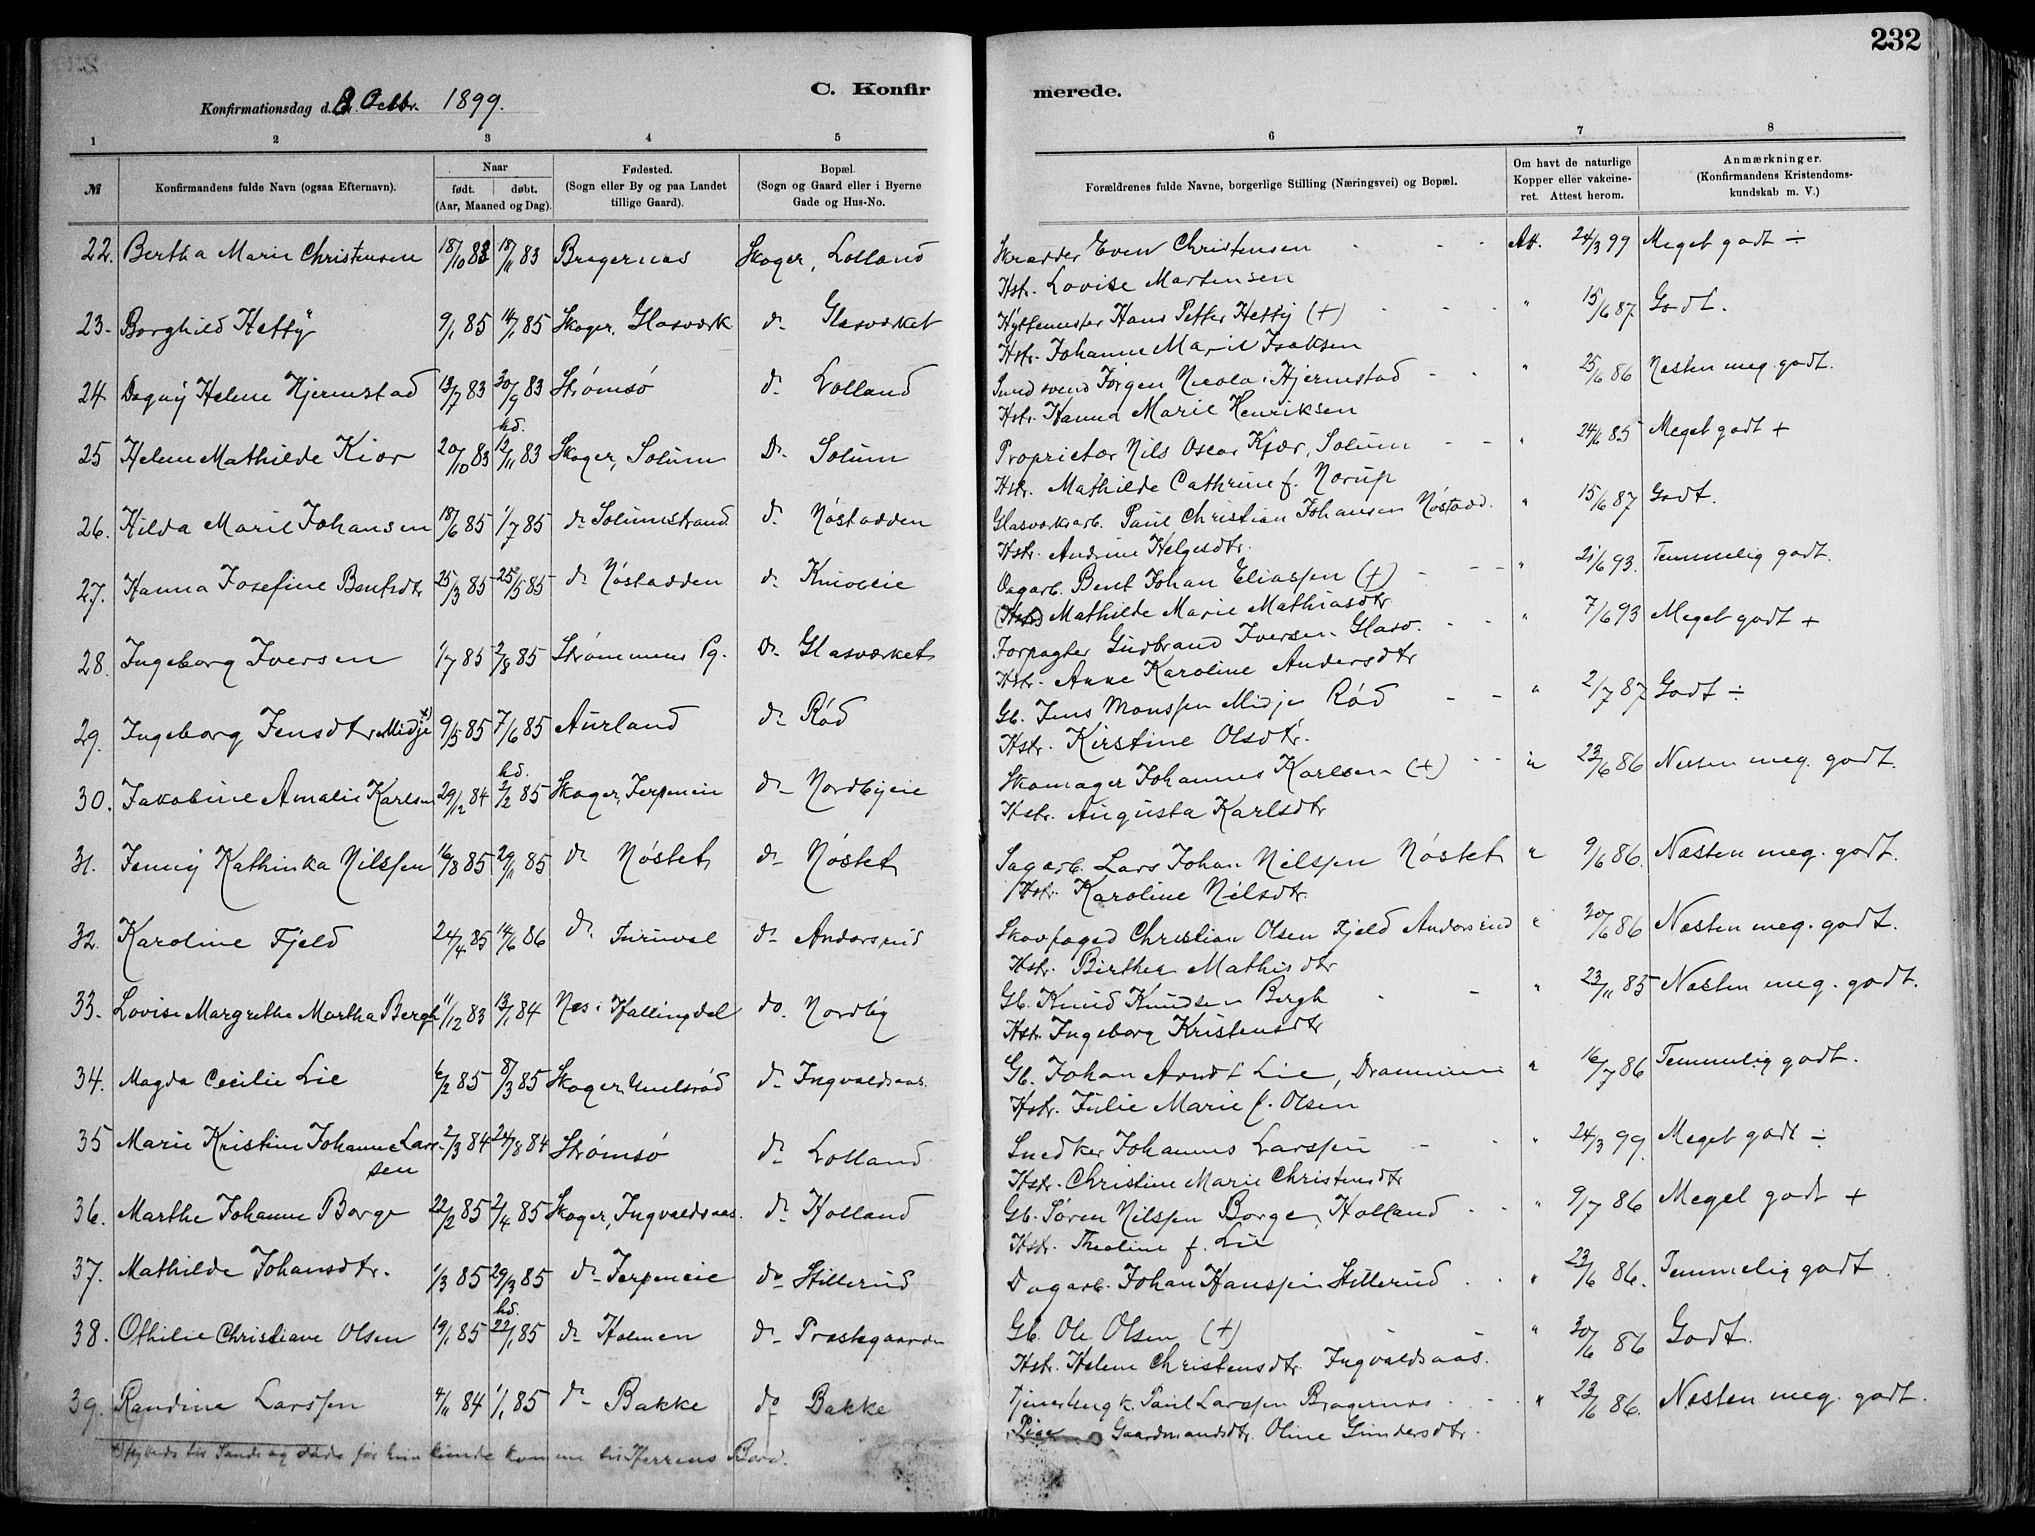 232
Konfirmationsdag d. 8. Octbr. 1899.
C. Konfirmerede.
1 2 3 4 5 6 7 8
№ Konfirmandens fulde Navn (ogsaa Efternavn). Naar født. døbt. (Aar, Maaned og Dag). Fødested. (Sogn eller By og paa Landet tillige Gaard). Bopæl. (Sogn og Gaard eller i Byerne Gade og Hus-No. Forældrenes fulde Navne, borgerlige Stilling (Næringsvei) og Bopæl. Om havt de naturlige Kopper eller vakcineret. Attest herom. Anmærkninger. (Konfirmandens Kristendomskundskab m. V.)
22. Bertha Marie Christensen 18/10 83 18/11 83 Bragernæs Skoger, Lolland Skrædder Even Christensen Att. 24/3 99 Meget godt ÷
Hstr. Lovise Martensen
23. Borghild Hettÿ 9/1 85 14/1 85 Skoger, Glasværk do Glasværket Hyttemester Hans Petter Hettÿ (+) " 15/6 87 Godt.
Hstr. Johanne Marie Isaksen
24 Dagny Helene Hjermstad 13/7 83 30/9 83 Strømsø do Lolland Smedsvend Jørgen Nicolai Hjermstad " 25/6 86 Næsten meg. godt.
Hstr. Hanna Marie Henriksen
25 Helene Mathilde Kiær 20/10 83 hd. 12/11 83 Skoger, Solum Do Solum Proprietær Nils Oscar Kjær, Solum " 24/6 85 Meget godt +
Hstr. Mathilde Cathrine f. Nørup
26. Hilda Marie Johansen 18/6 85 1/7 85 do Solumstrand do Nøstodden Glasværksarb. Paul Christian Johansen Nøstodd. " 15/6 87 Godt.
Hstr. Andrine Helgesdtr.
27. Hanna Josefine Bentsdtr 25/3 85 25/5 85 do Nøstodden do Knioseie Dagarb. Bent Johan Eliassen (+) " 21/6 93. Temmelig godt.
(Hstr) Mathilde Marie Mathiasdtr
28. Ingeborg Iversen 1/7 85 2/8 85 Strømmen Pg. do Glasværket Forpagter Gudbrand Iversen Glasv. " 7/6 93 Meget godt +
Hstr. Anne Karoline Andersdtr
29. Ingeborg Jensdtr Midje +) 9/5 85 7/6 85 Aurland do Rød Gb. Jens Monssen Midje Rød " 2/7 87 Godt ÷
Hstr. Kirstine Olsdtr.
30. Jakobine Amalie Karlsen 29/12 84 hd. 2/2 85 Skoger, Jerpeneie do Nordbyeie Skomager Johannes Karlsen (+) " 23/6 86 Næsten meg. godt.
Hstr. Augusta Karlsdtr
31. Jenny Kathinka Nilssen 16/8 85 29/11 85 do Nøstet do Nøstet Sagarb. Lars Johan Nilssen Nøstet " 9/6 86. Næsten meg. godt.
Hstr. Karoline Nilsdtr.
32. Karoline Fjeld 24/4 85 14/6 86 do do Andorsrud Skovfoged Christian Olsen Fjeld Andorsrud " 30/6 86 Næsten meg. godt.
Hstr. Birthe Mathisdtr
33. Lovise Margrethe Martha Bergh 11/12 83 13/1 84 Nes i Hallingdal do. Nordby Gb. Knud Knudsen Bergh " 23/11 85 Næsten meg. godt.
Hstr. Ingeborg Kristensdtr
34. Magda Cecilie Lie 6/2 85 8/3 85 Skoger do Ingvaldsaas. Gb. Johan Arndt Lie, Drammen " 16/7 86 Temmelig godt.
Hstr. Julie Marie f. Olsen
35 Marie Kristine Johanne Larssen 2/3 84 24/8 84 Strømsø do Lolland Snedker Johannes Larssen " 24/3 99. Meget godt ÷
Hstr. Christine Marie Christensdtr
36. Marthe Johanne Borge 22/2 85 2/4 85 Skoger, Ingvaldsaas. do Holland Gb. Søren Nilssen Borge, Holland " 9/7 86 Meget godt +
Hstr. Theoline f. Lie
37. Mathilde Johansdtr. 1/3 85 29/3 85 do Jerpeneie do Stillerud Dagarb. Johan Hanssen Stillerud " 23/6 86. Temmelig godt
38. Othilie Christiane Olsen 19/1 85 hd. 22/1 85 do Holmen do Præstegaarden Gb. Ole Olsen (+) " 30/6 86 Godt.
Hstr. Helene Christensdtr. Ingvaldsaas.
39. Randine Larssen 4/11 84 1/1 85 do Bakke do Bakke Paul Larssen Bragernæs " 23/6 86. Næsten meg. godt.
Pige Gaardmandsdtr. Oline Gundersdtr.
+) til Sande og døde før hun kunde komme til Herrens Bord.